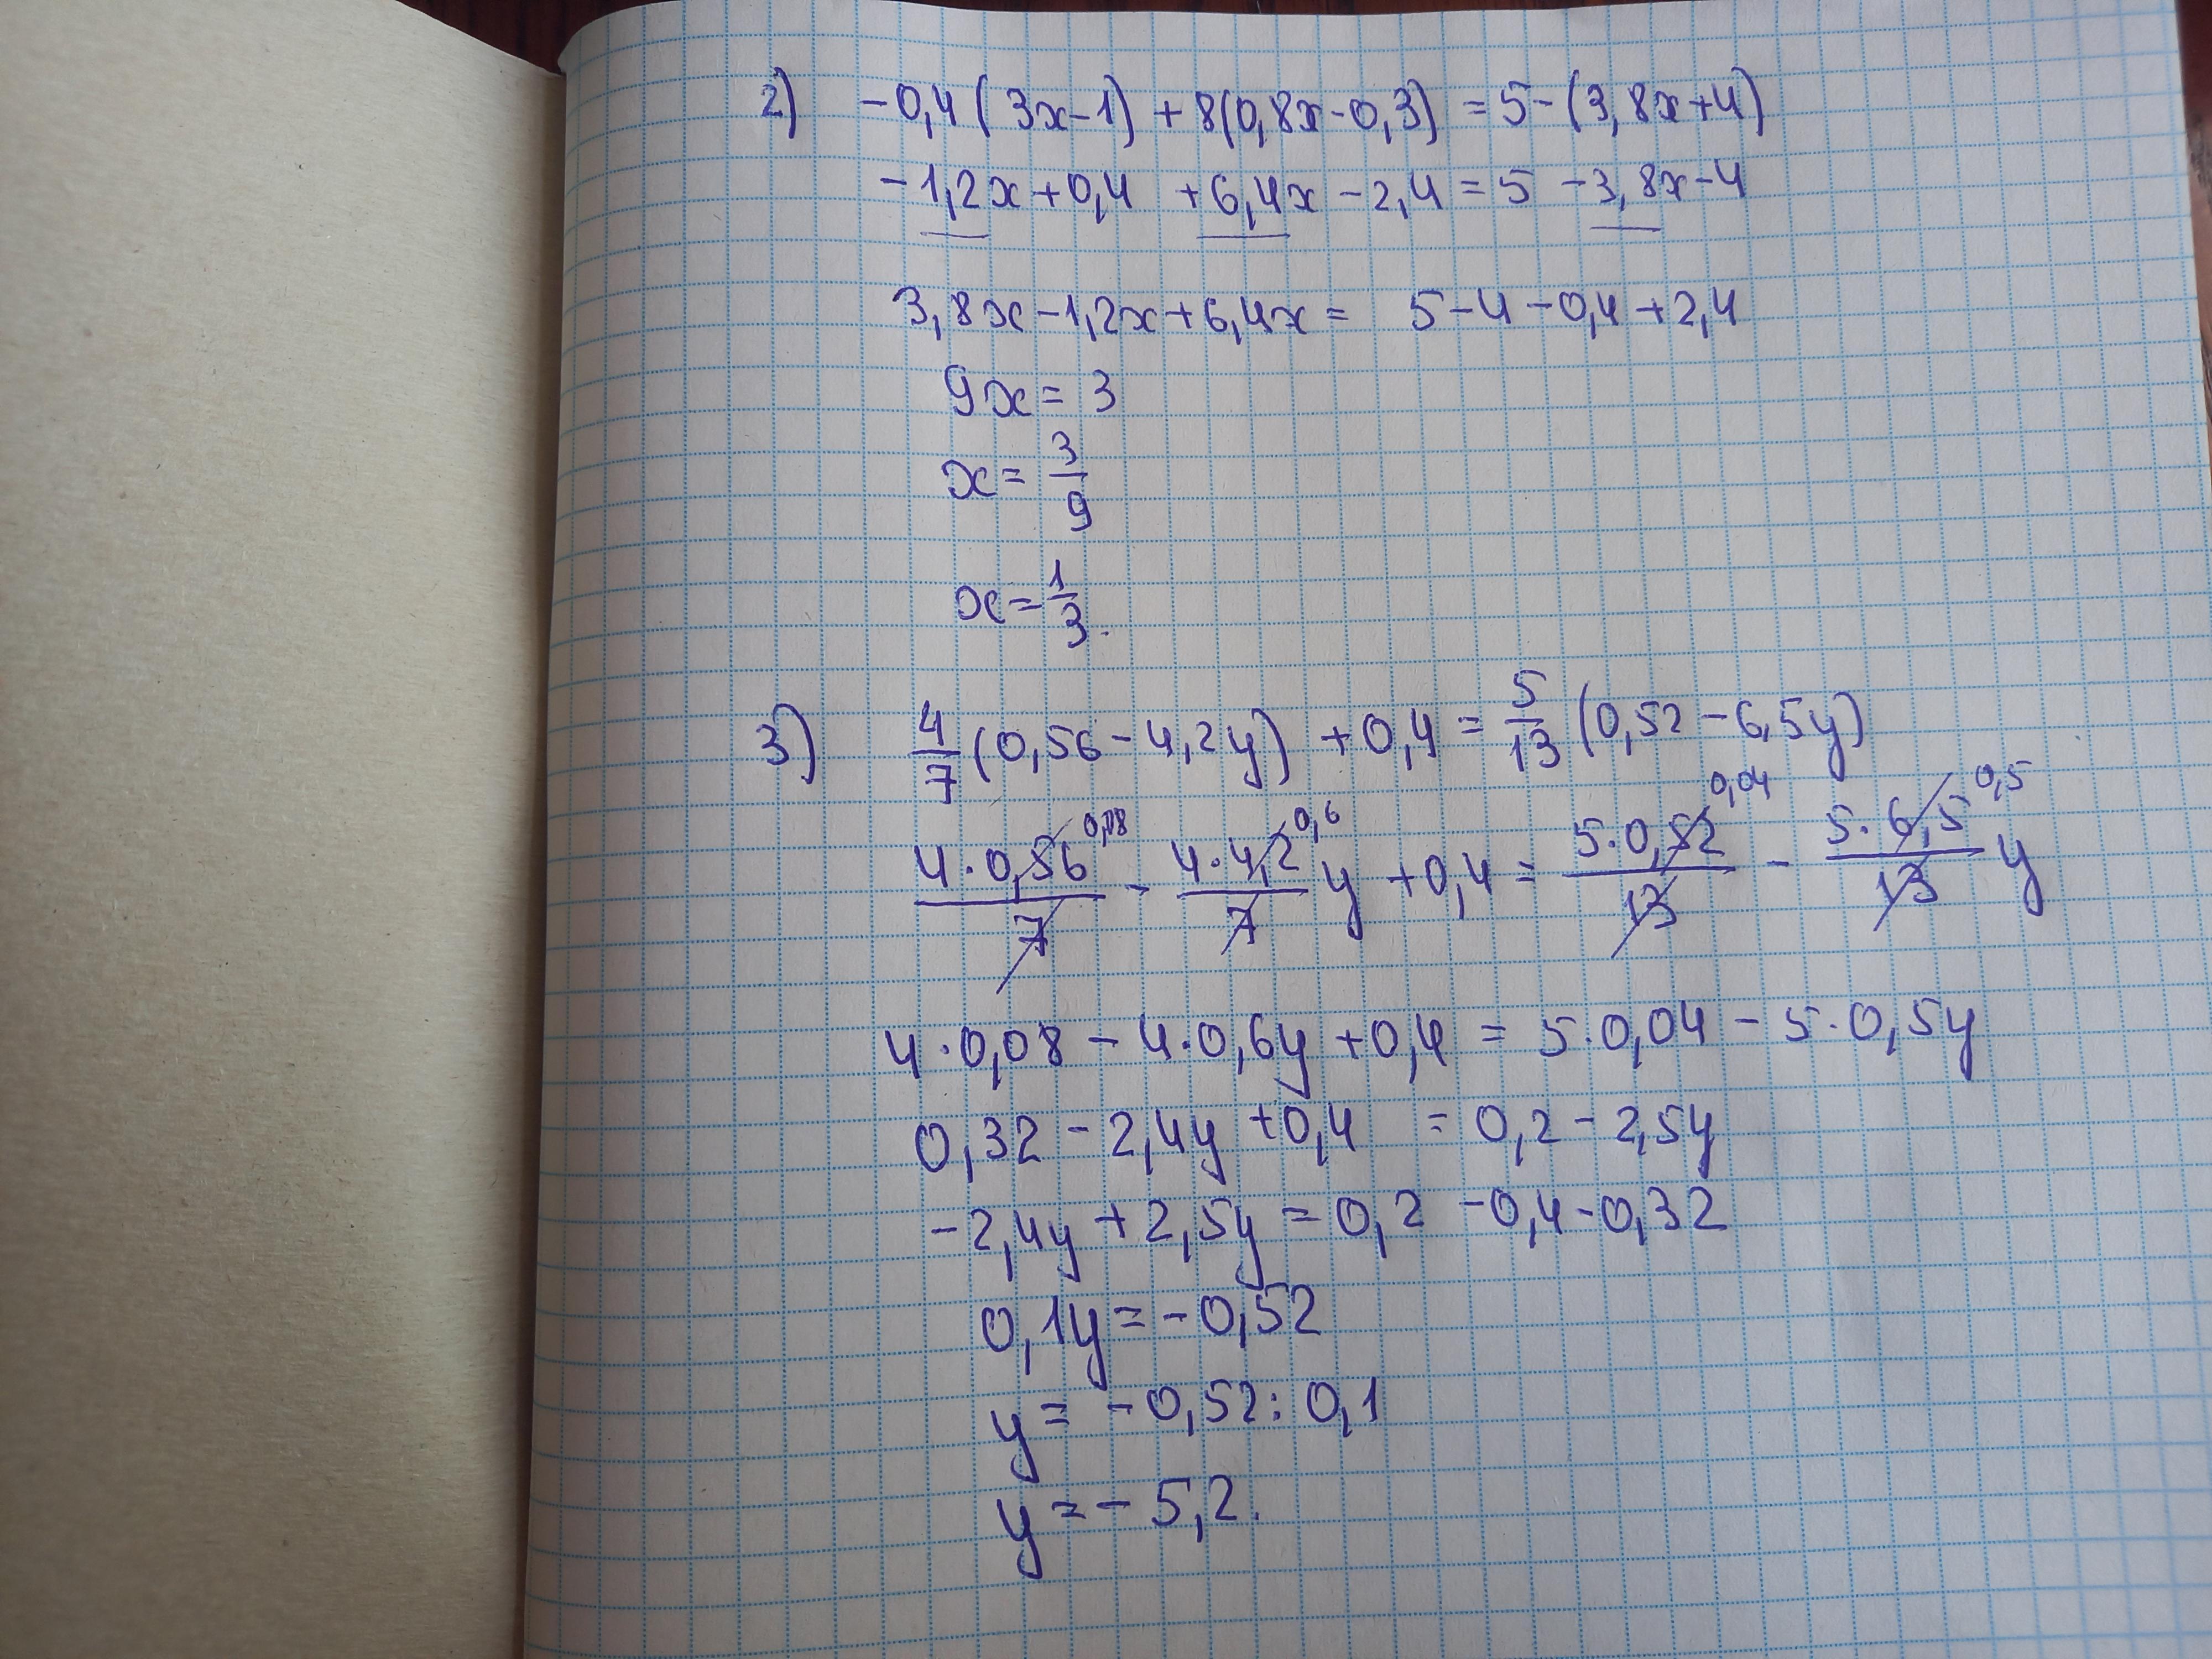 2) -0,4(3x-1)+8(0,8x-0,3)=5-(3,8x+4)
-1,2x+0,4+6,4x-2,4=5-3,8x-4
3,8x-1,2x+6,4x=5-4-0,4+2,4
9x=3
x=3/9
x=1/3.
3) 4/7(0,56-4,2y)+0,4=5/13(0,52-6,5y)
0,08 0,6 0,04 0,5
4·0,56/7-4·4,2/7y+0,4=5·0,52/13-5·6,5/13y
4·0,08-4·0,6y+0,4=5·0,04-5·0,5y
0,32-2,4y+0,4=0,2-2,5y
-2,4y+2,5y=0,2-0,4-0,32
0,1y=-0,52
y=-0,52:0,1
y=-5,2.